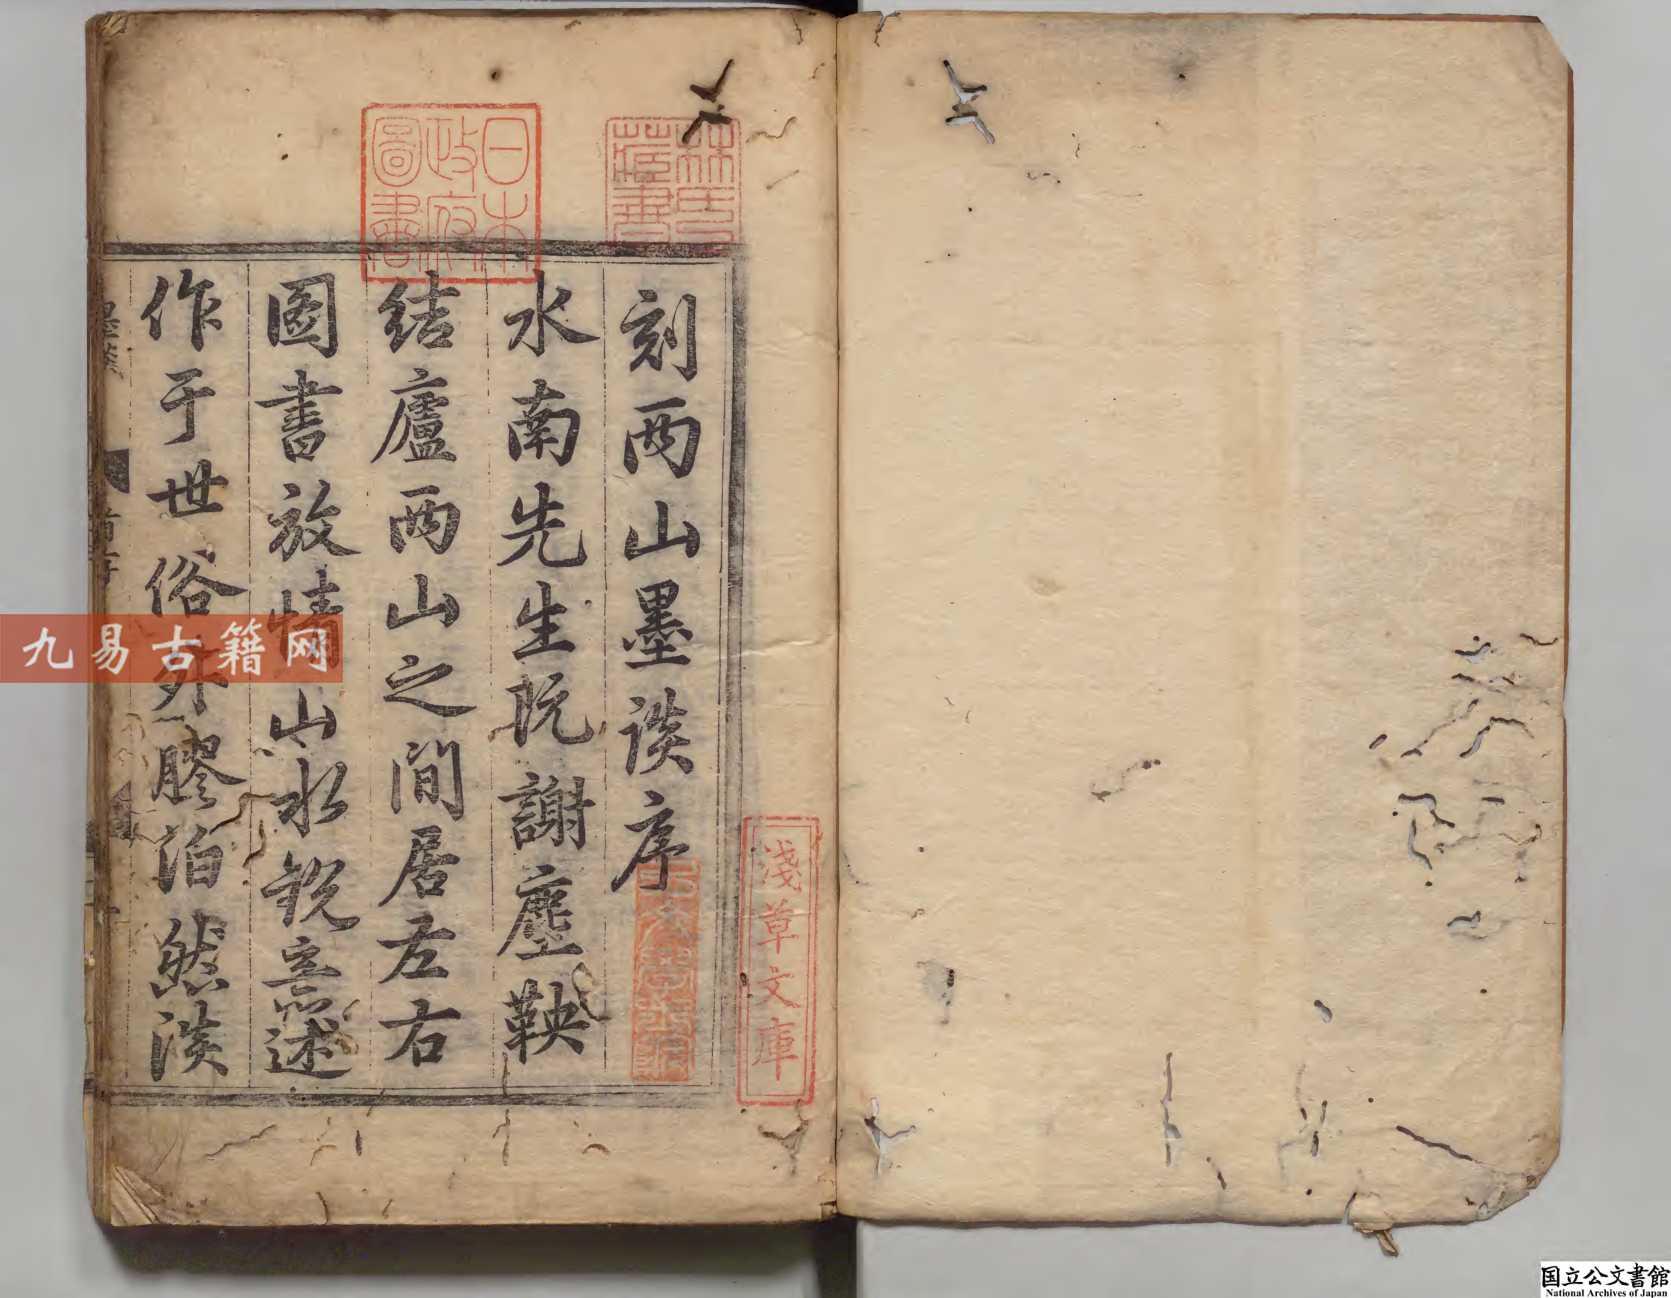 刻兩山墨談序
水南先生既謝塵鞅
結廬兩山之間居左右
圖書放情山水銳意述
作于世俗外膠泊然淡
日本
政府
圖書
林氏
藏書
淺草文庫
九易古籍网
国立公文書館
National Archives of Japan